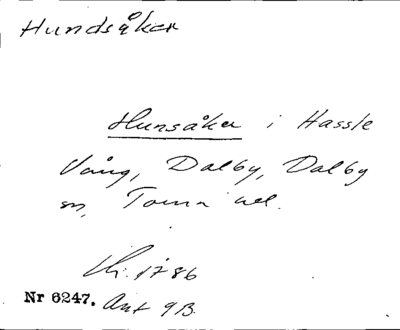 Hundsåker
Hunsåker i Hassle
Vång, Dalby, Dalby
sn, Torna hd.
1786
Nr 6247. Akt 9B.